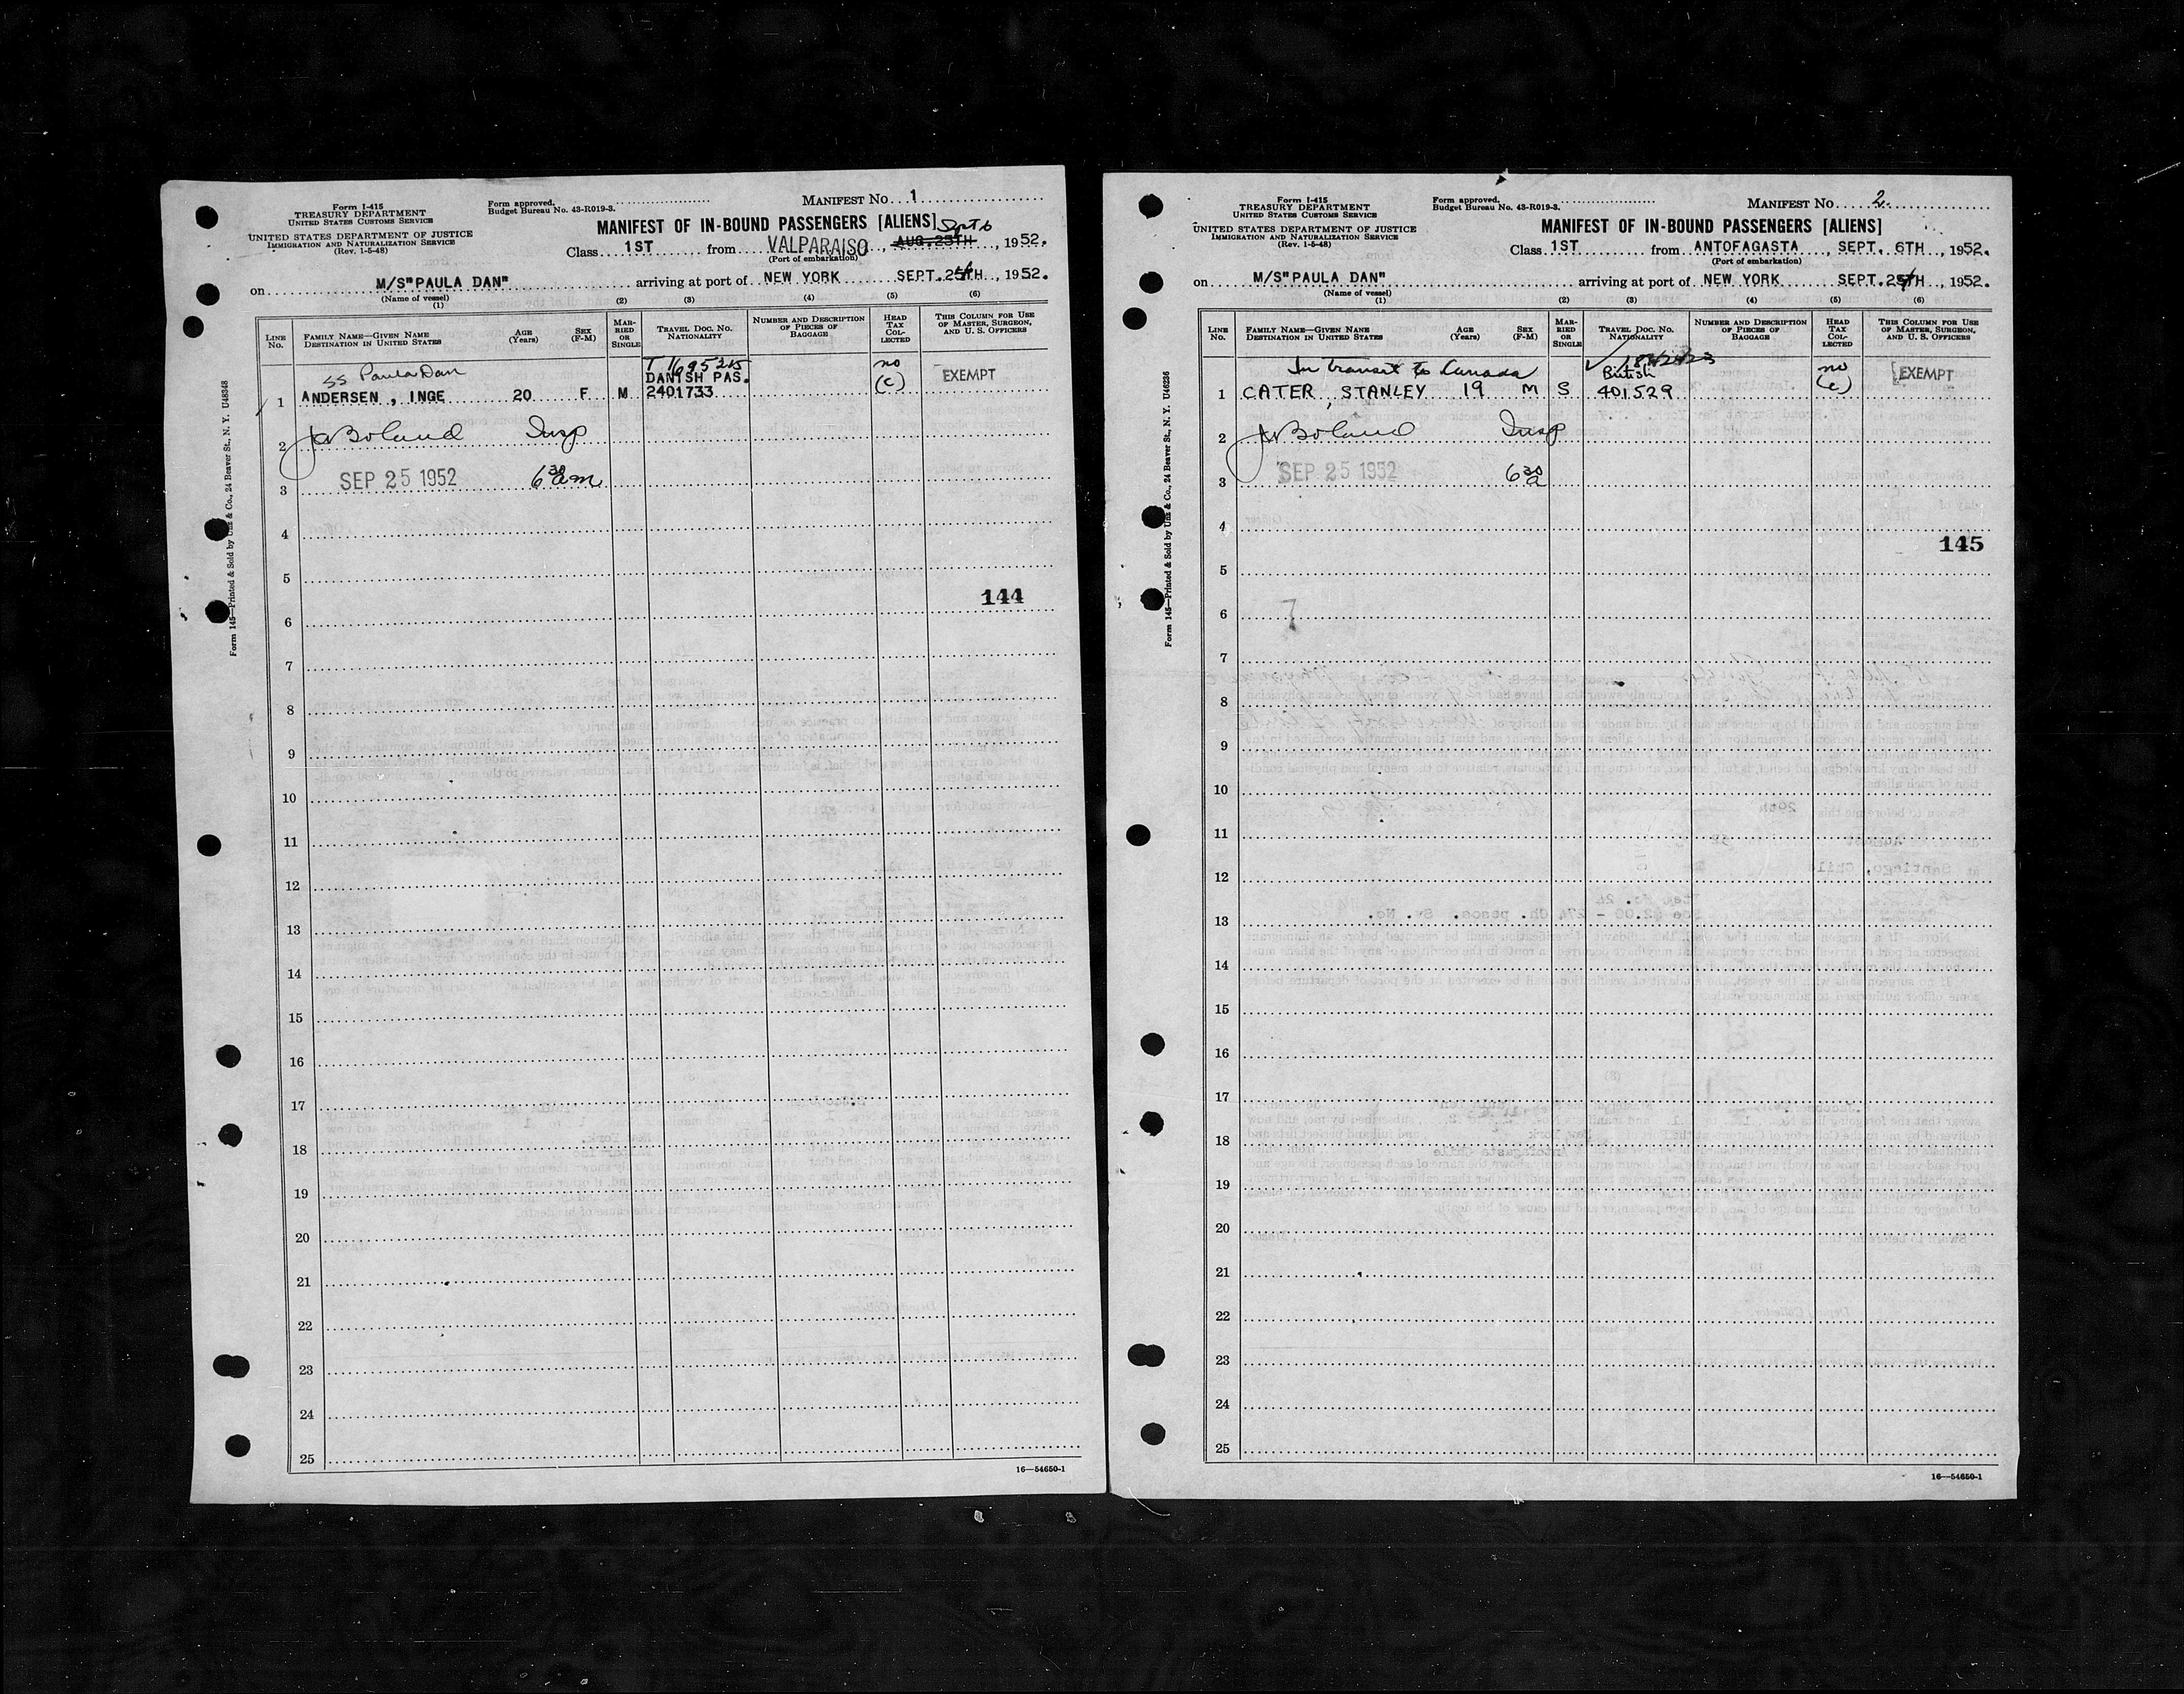 Form I-415
TREASURY DEPARTMENT
UNITED STATES CUSTOMS SERVICE
UNITED STATES DEPARTMENT OF JUSTICE
IMMIGRATION AND NATURALIZATION SERVICE
(Rev. 1-5-48)
Form approved.
Budget Bureau No. 43-R019-3.
MANIFEST No. 1
MANIFEST OF IN-BOUND PASSENGERS [ALIENS]
Sept 6
Class 1ST from VALPARAISO, AUG. 25TH, 1952.
(Port of embarkation)
on M/S"PAULA DAN" arriving at port of NEW YORK SEPT. 25TH, 1952.
(Name of vessel)
(1) (2) (3) (4) (5) (6)
LINE No.
FAMILY NAME—GIVEN NAME
DESTINATION IN UNITED STATES
AGE (Years)
SEX (F-M)
MARRIED OR SINGLE
TRAVEL DOC. NO. NATIONALITY
NUMBER AND DESCRIPTION OF PIECES OF BAGGAGE
HEAD TAX COLLECTED
THIS COLUMN FOR USE OF MASTER, SURGEON, AND U. S. OFFICERS
SS Paula Dan
T 1695215
DANISH PAS.
no
(c)
EXEMPT
1 ANDERSEN, INGE 20 F M 2401733
2 Boland Insp
3 SEP 25 1952 6 30 am
4
5
144
6
7
8
9
10
11
12
13
14
15
16
17
18
19
20
21
22
23
24
25
16—54650-1
Form 145—Printed & Sold by Unz & Co., 24 Beaver St., N. Y. U48348
Form I-415
TREASURY DEPARTMENT
UNITED STATES CUSTOMS SERVICE
UNITED STATES DEPARTMENT OF JUSTICE
IMMIGRATION AND NATURALIZATION SERVICE
(Rev. 1-5-48)
Form approved.
Budget Bureau No. 43-R019-3.
MANIFEST No. 2
MANIFEST OF IN-BOUND PASSENGERS [ALIENS]
Class 1ST from ANTOFAGASTA, SEPT. 6TH, 1952.
(Port of embarkation)
on M/S"PAULA DAN" arriving at port of NEW YORK SEPT. 25TH, 1952.
(Name of vessel)
(1) (2) (3) (4) (5) (6)
LINE No.
FAMILY NAME—GIVEN NAME
DESTINATION IN UNITED STATES
AGE (Years)
SEX (F-M)
MARRIED OR SINGLE
TRAVEL DOC. NO. NATIONALITY
NUMBER AND DESCRIPTION OF PIECES OF BAGGAGE
HEAD TAX COLLECTED
THIS COLUMN FOR USE OF MASTER, SURGEON, AND U. S. OFFICERS
In transit to Canada
British
no
(c)
EXEMPT
1 CATER, STANLEY 19 M S 401529
2 Boland Insp
3 SEP 25 1952 6 30 a
4
145
5
6
7
8
9
10
11
12
13
14
15
16
17
18
19
20
21
22
23
24
25
16—54650-1
Form 145—Printed & Sold by Unz & Co., 24 Beaver St., N. Y. U46236